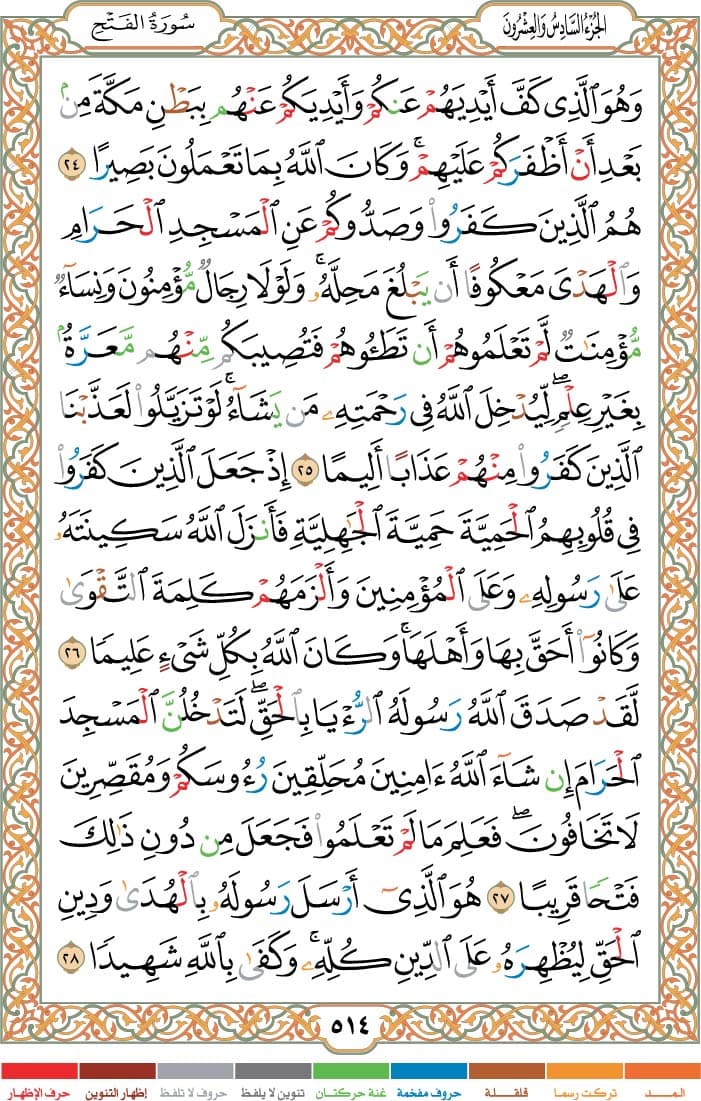 الجزء السادس والعشرون
سورة الفتح
وَهُوَ ٱلَّذِى كَفَّ أَيْدِيَهُمْ عَنكُمْ وَأَيْدِيَكُمْ عَنْهُم بِبَطْنِ مَكَّةَ مِنۢ
بَعْدِ أَنْ أَظْفَرَكُمْ عَلَيْهِمْ ۚ وَكَانَ ٱللَّهُ بِمَا تَعْمَلُونَ بَصِيرًا ٢٤
هُمُ ٱلَّذِينَ كَفَرُوا۟ وَصَدُّوكُمْ عَنِ ٱلْمَسْجِدِ ٱلْحَرَامِ
وَٱلْهَدْىَ مَعْكُوفًا أَن يَبْلُغَ مَحِلَّهُۥ ۚ وَلَوْلَا رِجَالٌ مُّؤْمِنُونَ وَنِسَآءٌ
مُّؤْمِنَـٰتٌ لَّمْ تَعْلَمُوهُمْ أَن تَطَـُٔوهُمْ فَتُصِيبَكُم مِّنْهُم مَّعَرَّةٌۢ
بِغَيْرِ عِلْمٍ ۖ لِّيُدْخِلَ ٱللَّهُ فِى رَحْمَتِهِۦ مَن يَشَآءُ ۚ لَوْ تَزَيَّلُوا۟ لَعَذَّبْنَا
ٱلَّذِينَ كَفَرُوا۟ مِنْهُمْ عَذَابًا أَلِيمًا ٢٥ إِذْ جَعَلَ ٱلَّذِينَ كَفَرُوا۟
فِى قُلُوبِهِمُ ٱلْحَمِيَّةَ حَمِيَّةَ ٱلْجَـٰهِلِيَّةِ فَأَنزَلَ ٱللَّهُ سَكِينَتَهُۥ
عَلَىٰ رَسُولِهِۦ وَعَلَى ٱلْمُؤْمِنِينَ وَأَلْزَمَهُمْ كَلِمَةَ ٱلتَّقْوَىٰ
وَكَانُوٓا۟ أَحَقَّ بِهَا وَأَهْلَهَا ۚ وَكَانَ ٱللَّهُ بِكُلِّ شَىْءٍ عَلِيمًا ٢٦
لَّقَدْ صَدَقَ ٱللَّهُ رَسُولَهُ ٱلرُّءْيَا بِٱلْحَقِّ ۖ لَتَدْخُلُنَّ ٱلْمَسْجِدَ
ٱلْحَرَامَ إِن شَآءَ ٱللَّهُ ءَامِنِينَ مُحَلِّقِينَ رُءُوسَكُمْ وَمُقَصِّرِينَ
لَا تَخَافُونَ ۖ فَعَلِمَ مَا لَمْ تَعْلَمُوا۟ فَجَعَلَ مِن دُونِ ذَٰلِكَ
فَتْحًا قَرِيبًا ٢٧ هُوَ ٱلَّذِىٓ أَرْسَلَ رَسُولَهُۥ بِٱلْهُدَىٰ وَدِينِ
ٱلْحَقِّ لِيُظْهِرَهُۥ عَلَى ٱلدِّينِ كُلِّهِۦ ۚ وَكَفَىٰ بِٱللَّهِ شَهِيدًا ٢٨
٥١٤
المـــد تركت رسما قلقلة حروف مفخمة غنة حركتان تنوين لا يلفظ حروف لا تلفظ إظهار التنوين حرف الإظهار